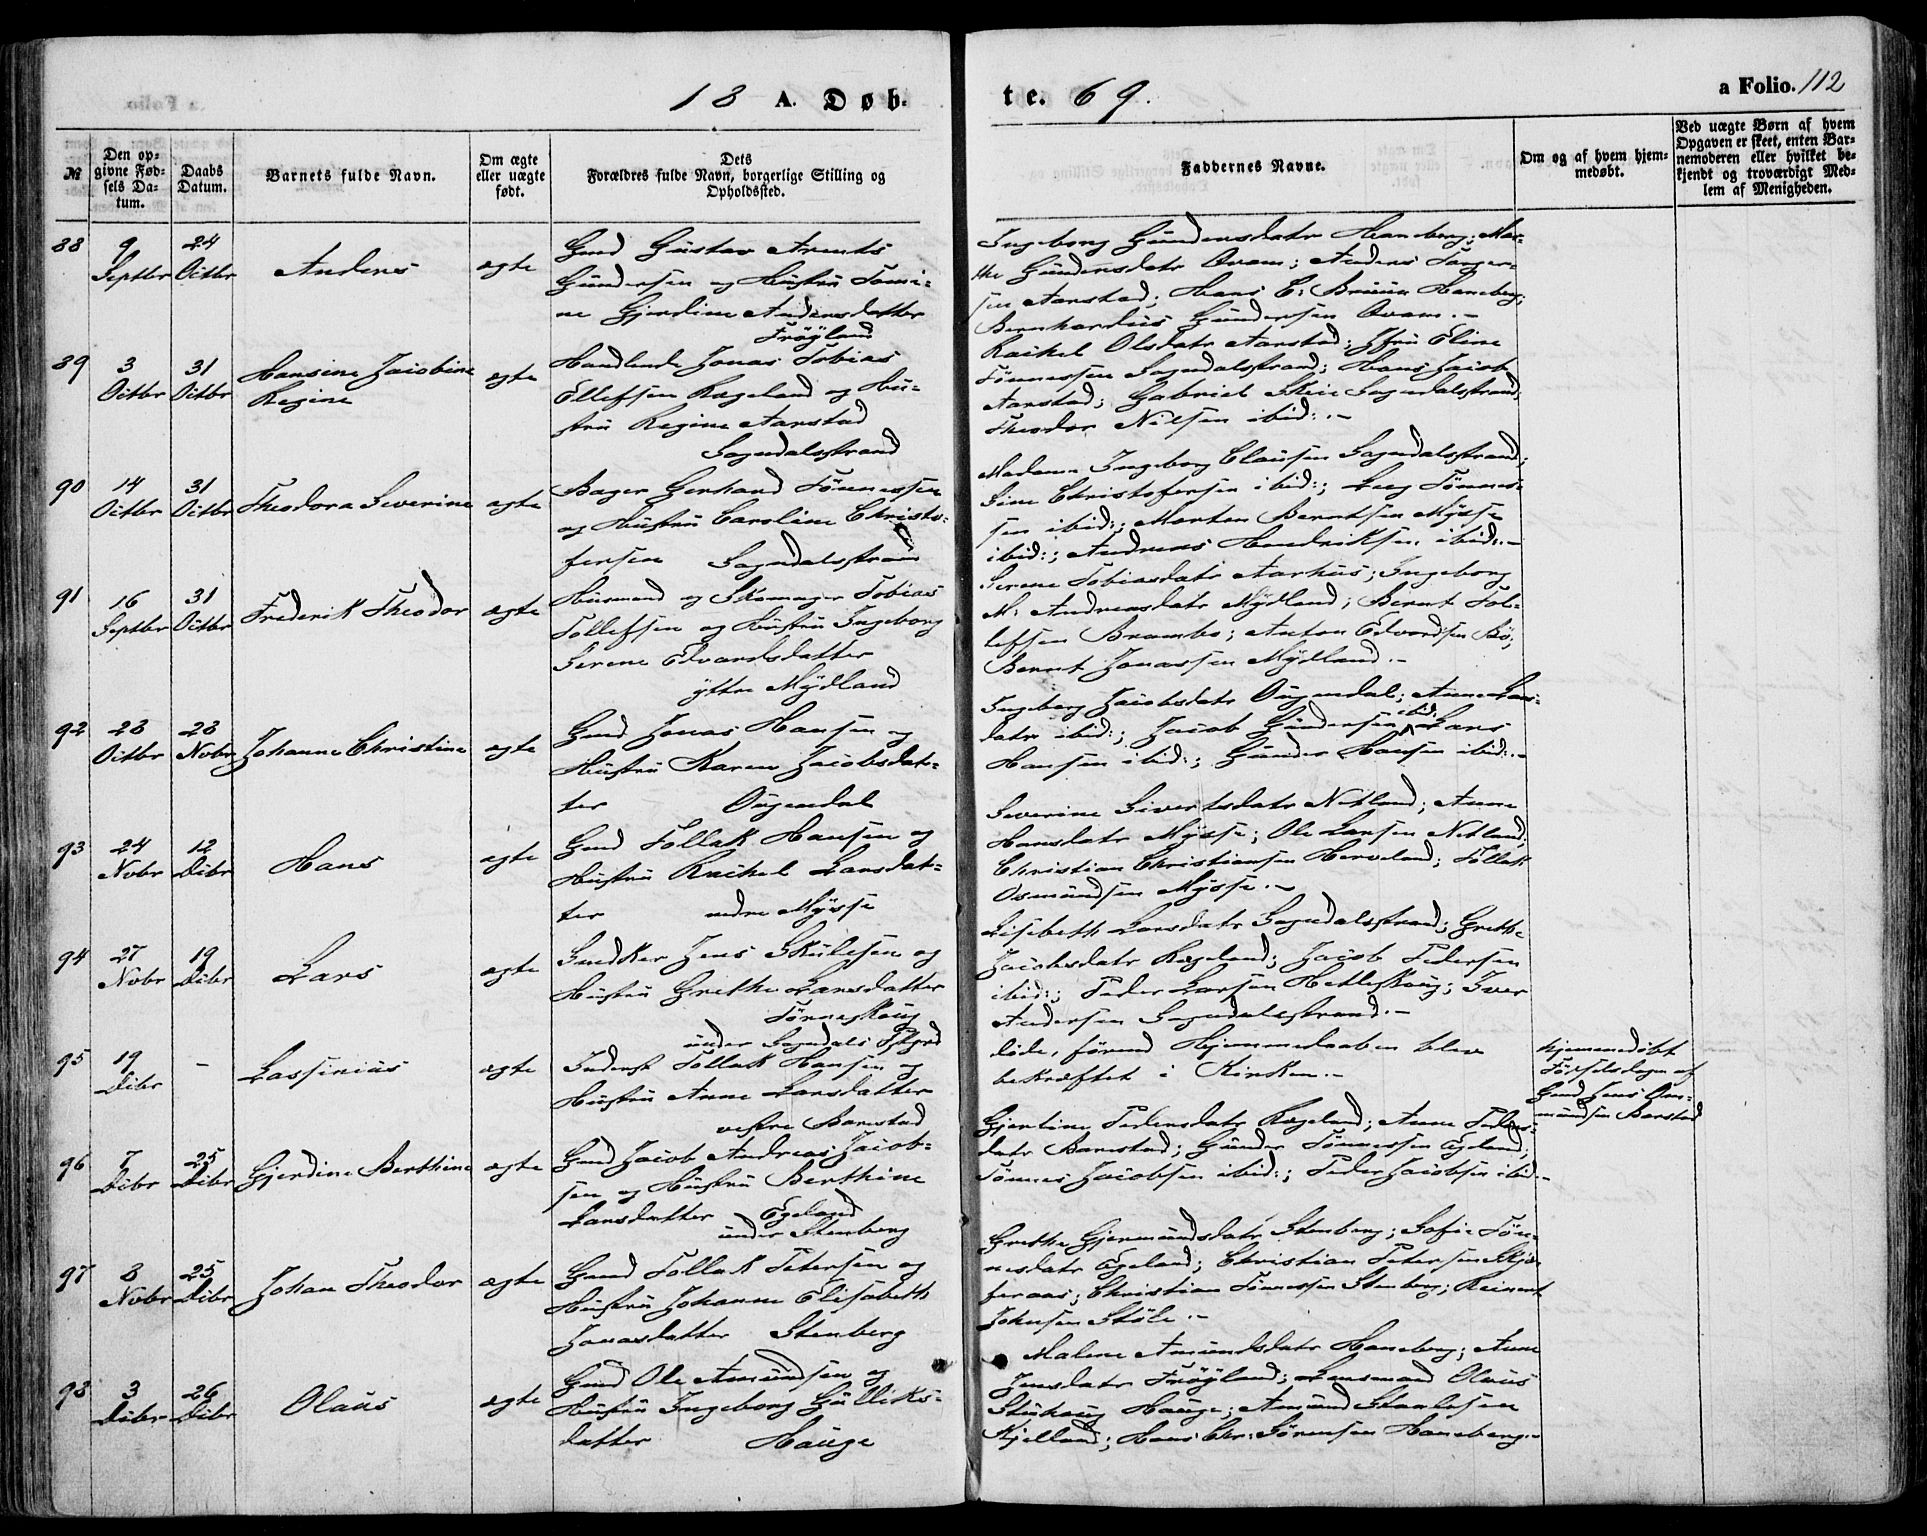 18 A. Døb-
te. 69.
a Folio. 112
№
Den op-
givne Fød-
sels Da-
tum.
Daabs
Datum.
Barnets fulde Navn.
Om ægte
eller uægte
født.
Dets
Forældres fulde Navn, borgerlige Stilling og
Opholdssted.
Faddernes Navne.
Om og af hvem hjem-
medøbt.
Ved uægte Børn af hvem
Opgaven er skeet, enten Bar-
nemoderen eller hvilket be-
kjendt og troværdigt Med-
lem af Menigheden.
88
9
Septbr
24
Octbr
Anders
ægte
Gmd Gustav Arents
Gundersen og Hustru Tomi-
ne Gjerdine Andersdatter
Frøyland
Ingeborg Gundersdatr Haneberg; Mar-
the Gundersdatr Ovam; Anders Tonger-
sen Aarstad; Hans C: Bruun Haneberg;
Bernhardus Gundersen Ovam.-
89
3
Octbr
31
Octbr
Hansine Jacobine
Regine
ægte
Handlende Jonas Tobias
Ellefsen Rægeland og Hu-
stru Regine Aarstad
Sogndalsstrand
Rachel Olsdatr Aarstad; Jfru Eline
Tønnessen Sogndalstrand; Hans Jacob
Aarstad; Gabriel Skeie Sogndalstrand;
Theodor Nilsen ibid:.-
90
14
Octbr
31
Octbr
Theodora Severine
ægte
Bager Gerhard Tønnessen
og Hustru Caroline Christo-
fersen Sogndalsstrand
Madame Ingeborg Clausen Sogndalsstrand;
Sine Christofersen ibid:; Leeg Tønnes-
sen ibid:; Morten Berntsen Mysse
ibid:; Andreas Hendriksen ibid:.-
91
16
Septbr
31
Octbr
Frederik Theodor
ægte
Husmand og Skomager Tobias
Tollefsen og Hustru Ingeborg
Serene Edvardsdatter
ytre Mydland
Serene Tobiasdatr Aarhus; Ingeborg
M: Andreasdatr Mydland; Bernt Tol-
lefsen Brambo; Anton Edvardsen Bø;
Bernt Jonassen Mydland.-
92
28
Octbr
28
Novbr
Johanne Christine
ægte
Gmd Jonas Hansen og
Hustru Karen Jacobsdat-
ter Ougendal
Ingeborg Jacobsdatr Ougendal; Anne Lars-
datr ibid:; Jacob Gundersen ibid: Lars
Hansen ibid:; Gunder Hansen ibid:.-
93
24
Novbr
12
Dcbr
Hans
ægte
Gmd Tollak Hansen og
Hustru Rachel Larsdat-
ter nedre Mysse
Severine Sivertsdatr Netland; Anne
Hansdatr Mysse; Ole Larsen Netland;
Christian Christiansen Herveland; Tollak
Osmundsen Mysse.-
94
27
Novbr
19
Dcbr
Lars
ægte
Snedker Jens Skulesen og
Hustru Grethe Larsdatter
Tønneskoug
under Sogndals Pstgrd
Lisebeth Larsdatr Sogndalsstrand; Grethe
Jacobsdatr Rægeland; Jacob Pedersen
ibid:; Peder Larsen Hetleskoug; Iver
Andersen Sogndalsstrand.-
95
19
Dcbr
-
Lassinius
ægte
Inderst Tollak Hansen og
Hustru Anne Larsdatter
vestre Barstad
døde, førend Hjemmedaaben blev
bekræftet i Kirken.-
Hjemmedøbt
Fødselsdagen af
Gmd Jens Os-
mundsen Barstad
96
7
Dcbr
25
Dcbr
Gjerdine Berthine
ægte
Gmd Jacob Andreas Jacob-
sen og Hustru Berthine
Larsdatter Egeland
under Stenberg
Gjertine Pedersdatr Rægeland; Anne Peders-
datr Barstad; Gunder Tønnessen Egeland;
Tønnes Jacobsen ibid:; Peder Jacobsen ibid:-
97
8
Novbr
25
Dcbr
Johan Theodor
ægte
Gmd Tollak Petersen og
Hustru Johanne Elisabeth
Jonasdatter Stenberg
Grethe Gjermundsdatr Stenberg; Sofie Tøn-
nesdatr Egeland; Christian Petersen Skjæ-
feraas; Christian Tønnessen Stenberg; Reinert
Johnsen Støle.-
98
3
Dcbr
26
Dcbr
Olaus
ægte
Gmd Ole Amundsen og
Hustru Ingeborg Gulliks-
datter Hauge
Malene Amundsdatr Haneberg; Anne
Jensdatr Frøyland; Lensmand Olaus
Hauge; Amund Staalesen
Kjelland; Hans Chr: Sørensen Haneberg.-